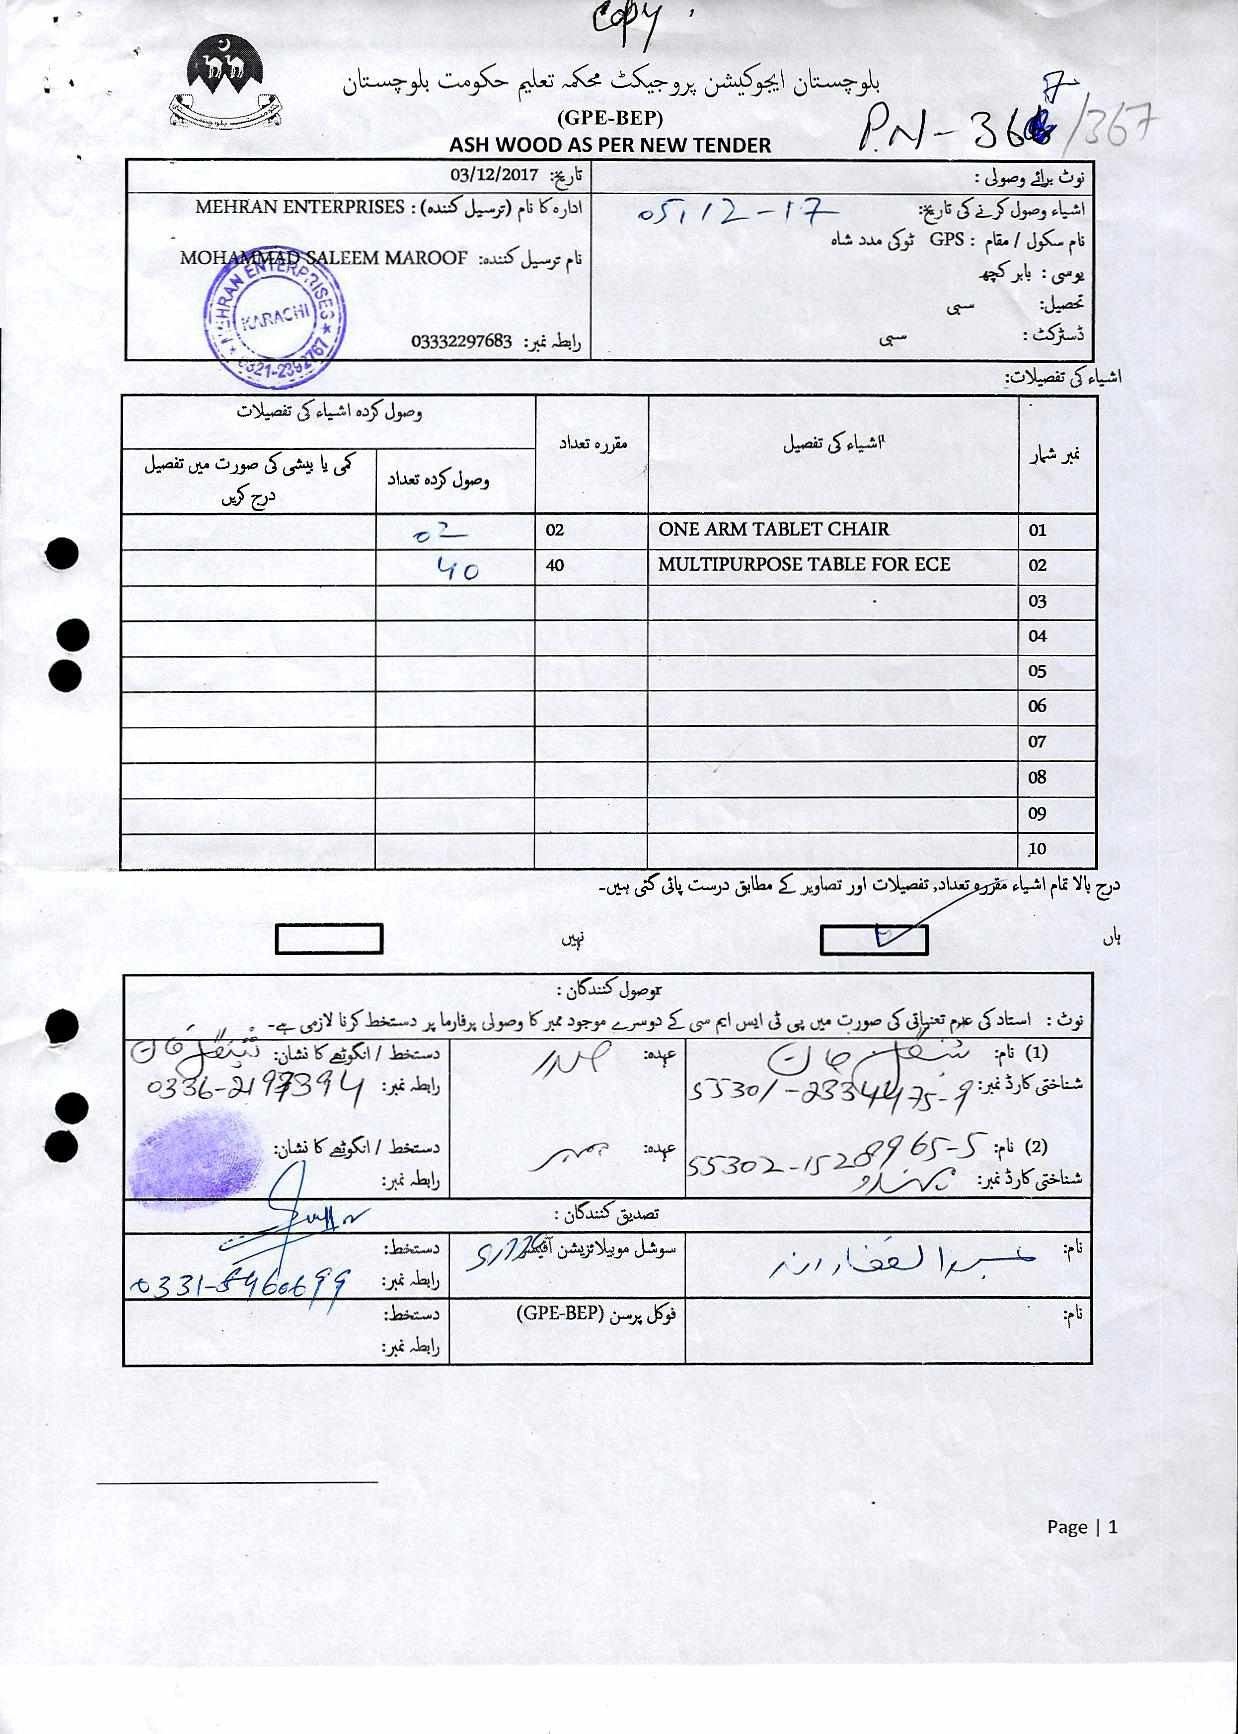 Copy
بلوچستان ایجوکیشن پروجیکٹ محکمہ تعلیم حکومت بلوچستان
(GPE-BEP)
P.N-36 7 /367
ASH WOOD AS PER NEW TENDER
نوٹ برائے وصولی :
تاریخ: 03/12/2017
اشیاء وصول کرنے کی تاریخ: 05/12-17
ادارہ کا نام (ترسیل کنندہ) : MEHRAN ENTERPRISES
نام سکول / مقام : GPS ٹوکی مدد شاہ
نام ترسیل کنندہ: MOHAMMAD SALEEM MAROOF
یوسی : بابر کچھ
تحصیل: سبی
ڈسٹرکٹ : سبی
رابطہ نمبر: 03332297683
MEHRAN ENTERPRISES
KARACHI
0321-2392767
اشیاء کی تفصیلات:
نمبر شمار
اشیاء کی تفصیل
مقررہ تعداد
وصول کردہ اشیاء کی تفصیلات
وصول کردہ تعداد
کمی یا بیشی کی صورت میں تفصیل درج کریں
01 ONE ARM TABLET CHAIR 02 02
02 MULTIPURPOSE TABLE FOR ECE 40 40
03
04
05
06
07
08
09
10
درج بالا تمام اشیاء مقررہ تعداد, تفصیلات اور تصاویر کے مطابق درست پائی گئی ہیں۔
ہاں
نہیں
وصول کنندگان :
نوٹ : استاد کی عدم تعیناتی کی صورت میں پی ٹی ایس ایم سی کے دوسرے موجود ممبر کا وصولی پرفارما پر دستخط کرنا لازمی ہے۔
(1) نام: عہدہ: صدر دستخط / انگوٹھے کا نشان:
شناختی کارڈ نمبر: 55301-2334475-9 رابطہ نمبر: 0336-2197394
(2) نام: 55302-1528965-5 عہدہ: ممبر دستخط / انگوٹھے کا نشان:
شناختی کارڈ نمبر: رابطہ نمبر:
تصدیق کنندگان :
نام: سوشل موبیلائزیشن آفیسر دستخط:
رابطہ نمبر: 0331-8460699
نام: فوکل پرسن (GPE-BEP) دستخط:
رابطہ نمبر:
Page | 1